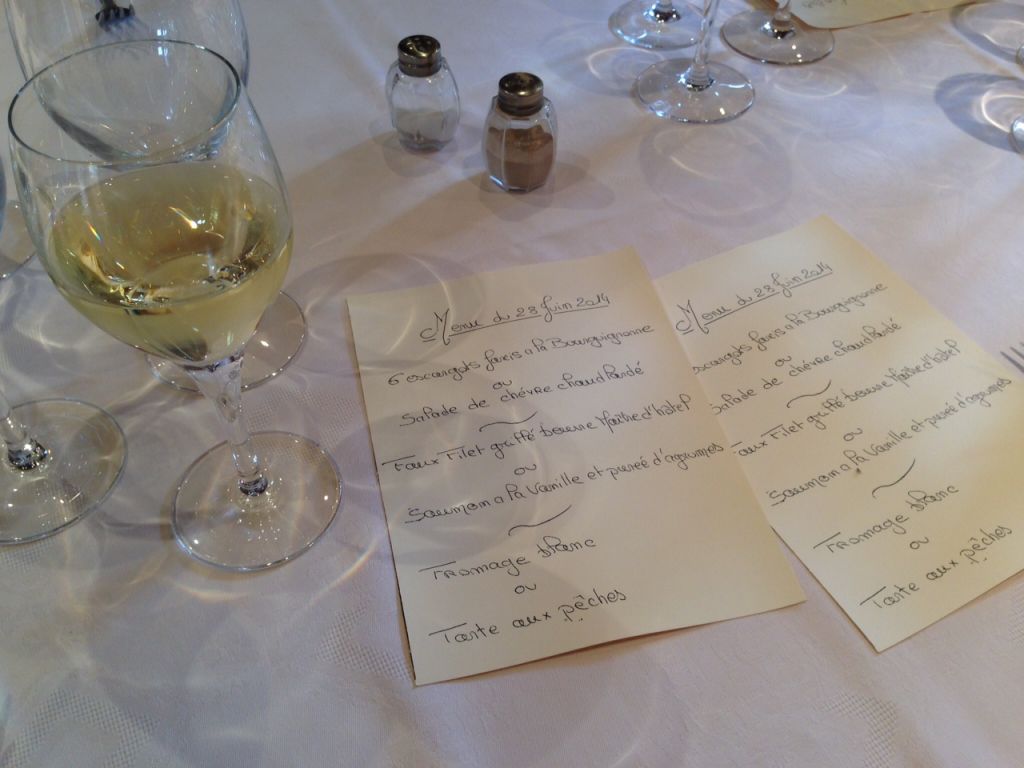 Menu du 28 Juin 2014
6 escargots farcis a la Bourguignonne
ou
Salade de chévre chaud lardé
Faux Filet grillé beurre Maître d'hôtel
ou
Saumon a la Vanille et purée d'agrumes
Fromage blanc
ou
Tarte aux pêches
Menu du 28 Juin 2014
escargots farcis a la Bourguignonne
ou
Salade de chévre chaud lardé
Faux Filet grillé beurre Maître d'hôtel
ou
Saumon a la Vanille et purée d'agrumes
Fromage blanc
ou
Tarte aux pêches